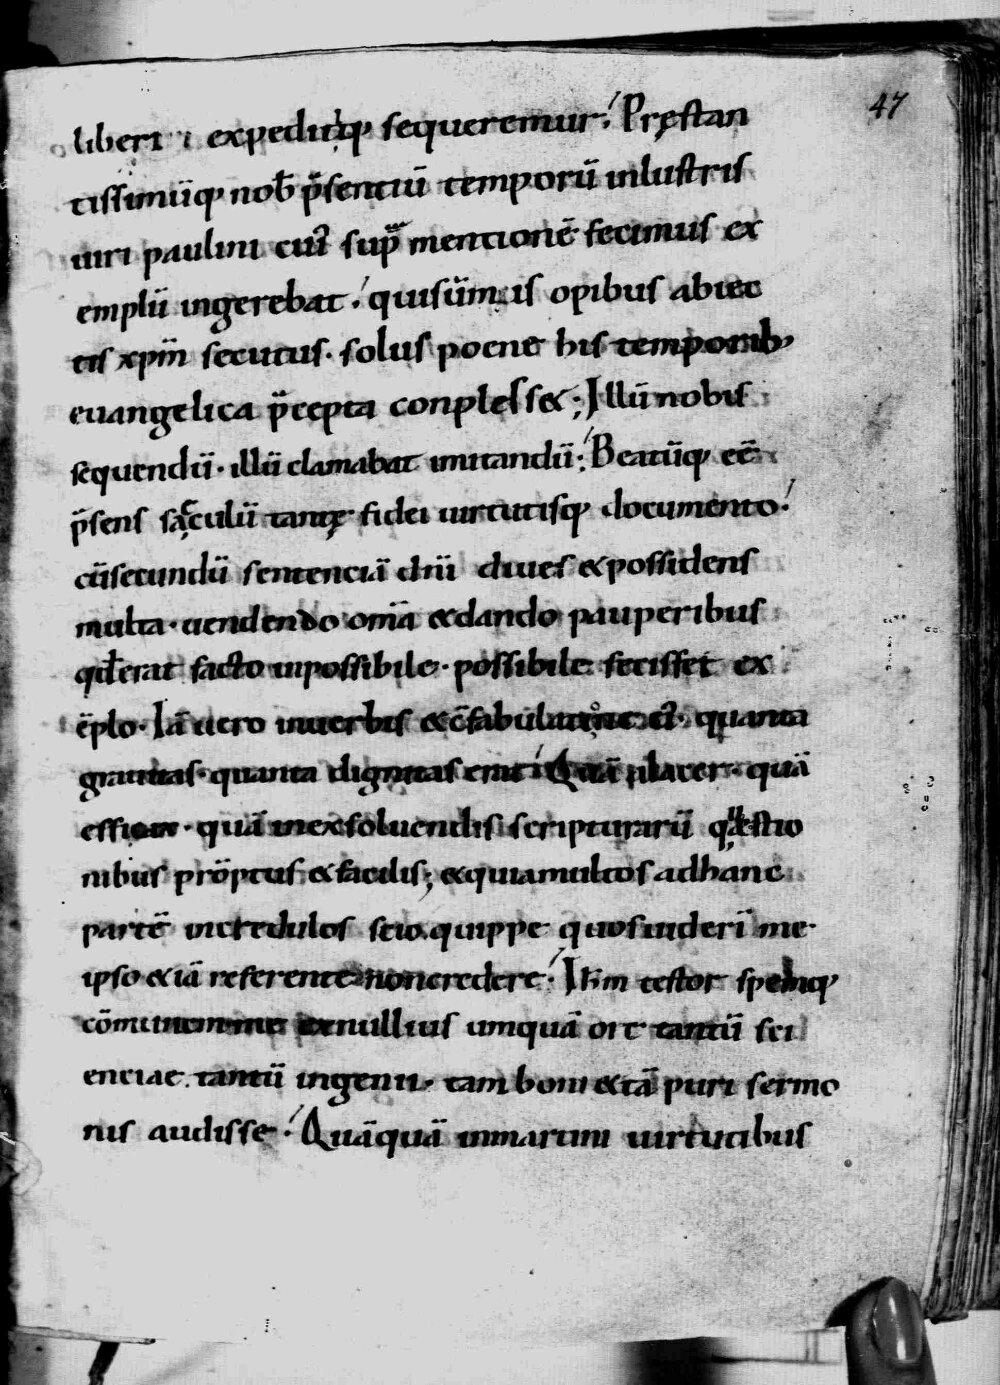 47
liberi · expeditiq; sequeremur. Pręstan
tissimūq; nob̄ p̄sentiū temporū inlustris
uiri paulini cui᾽ sup̄ mentionē fecimus ex
emplū ingerebat. qui sūmis opibus abiec
tis xp̄m secutus. solus poene his temporib;
euangelica p̄cepta conplesset; Illū nobis
sequendū. illū clamabat imitandū; Beatūq; eē
p̄sens sęculū tantę fidei uirtutisq; documento.
cū secundū sententiā dn̄i diues & possidens
multa. uendendo om̄a & dando pauperibus
qđ erat factu inpossibile. possibile fecisset ex
ēplo. Iā uero in uerbis & c̄fabulatione ei᾽. quanta
grauitas. quanta dignitas erat. Quā alacer. quā
efficax. quā in exsoluendis scripturarū quęstio
nibus prōptus & facilis; & quia multos ad hanc
partē incredulos scio. quippe quos uiderī me
ipso & iā referente non credere. Ih̄m testor spemq;
cōmunem me ex nullius umquā ore tantū sci
entiae. tantū ingenii. tam boni & tā puri sermo
nis audisse. Quāquā in martini uirtutibus